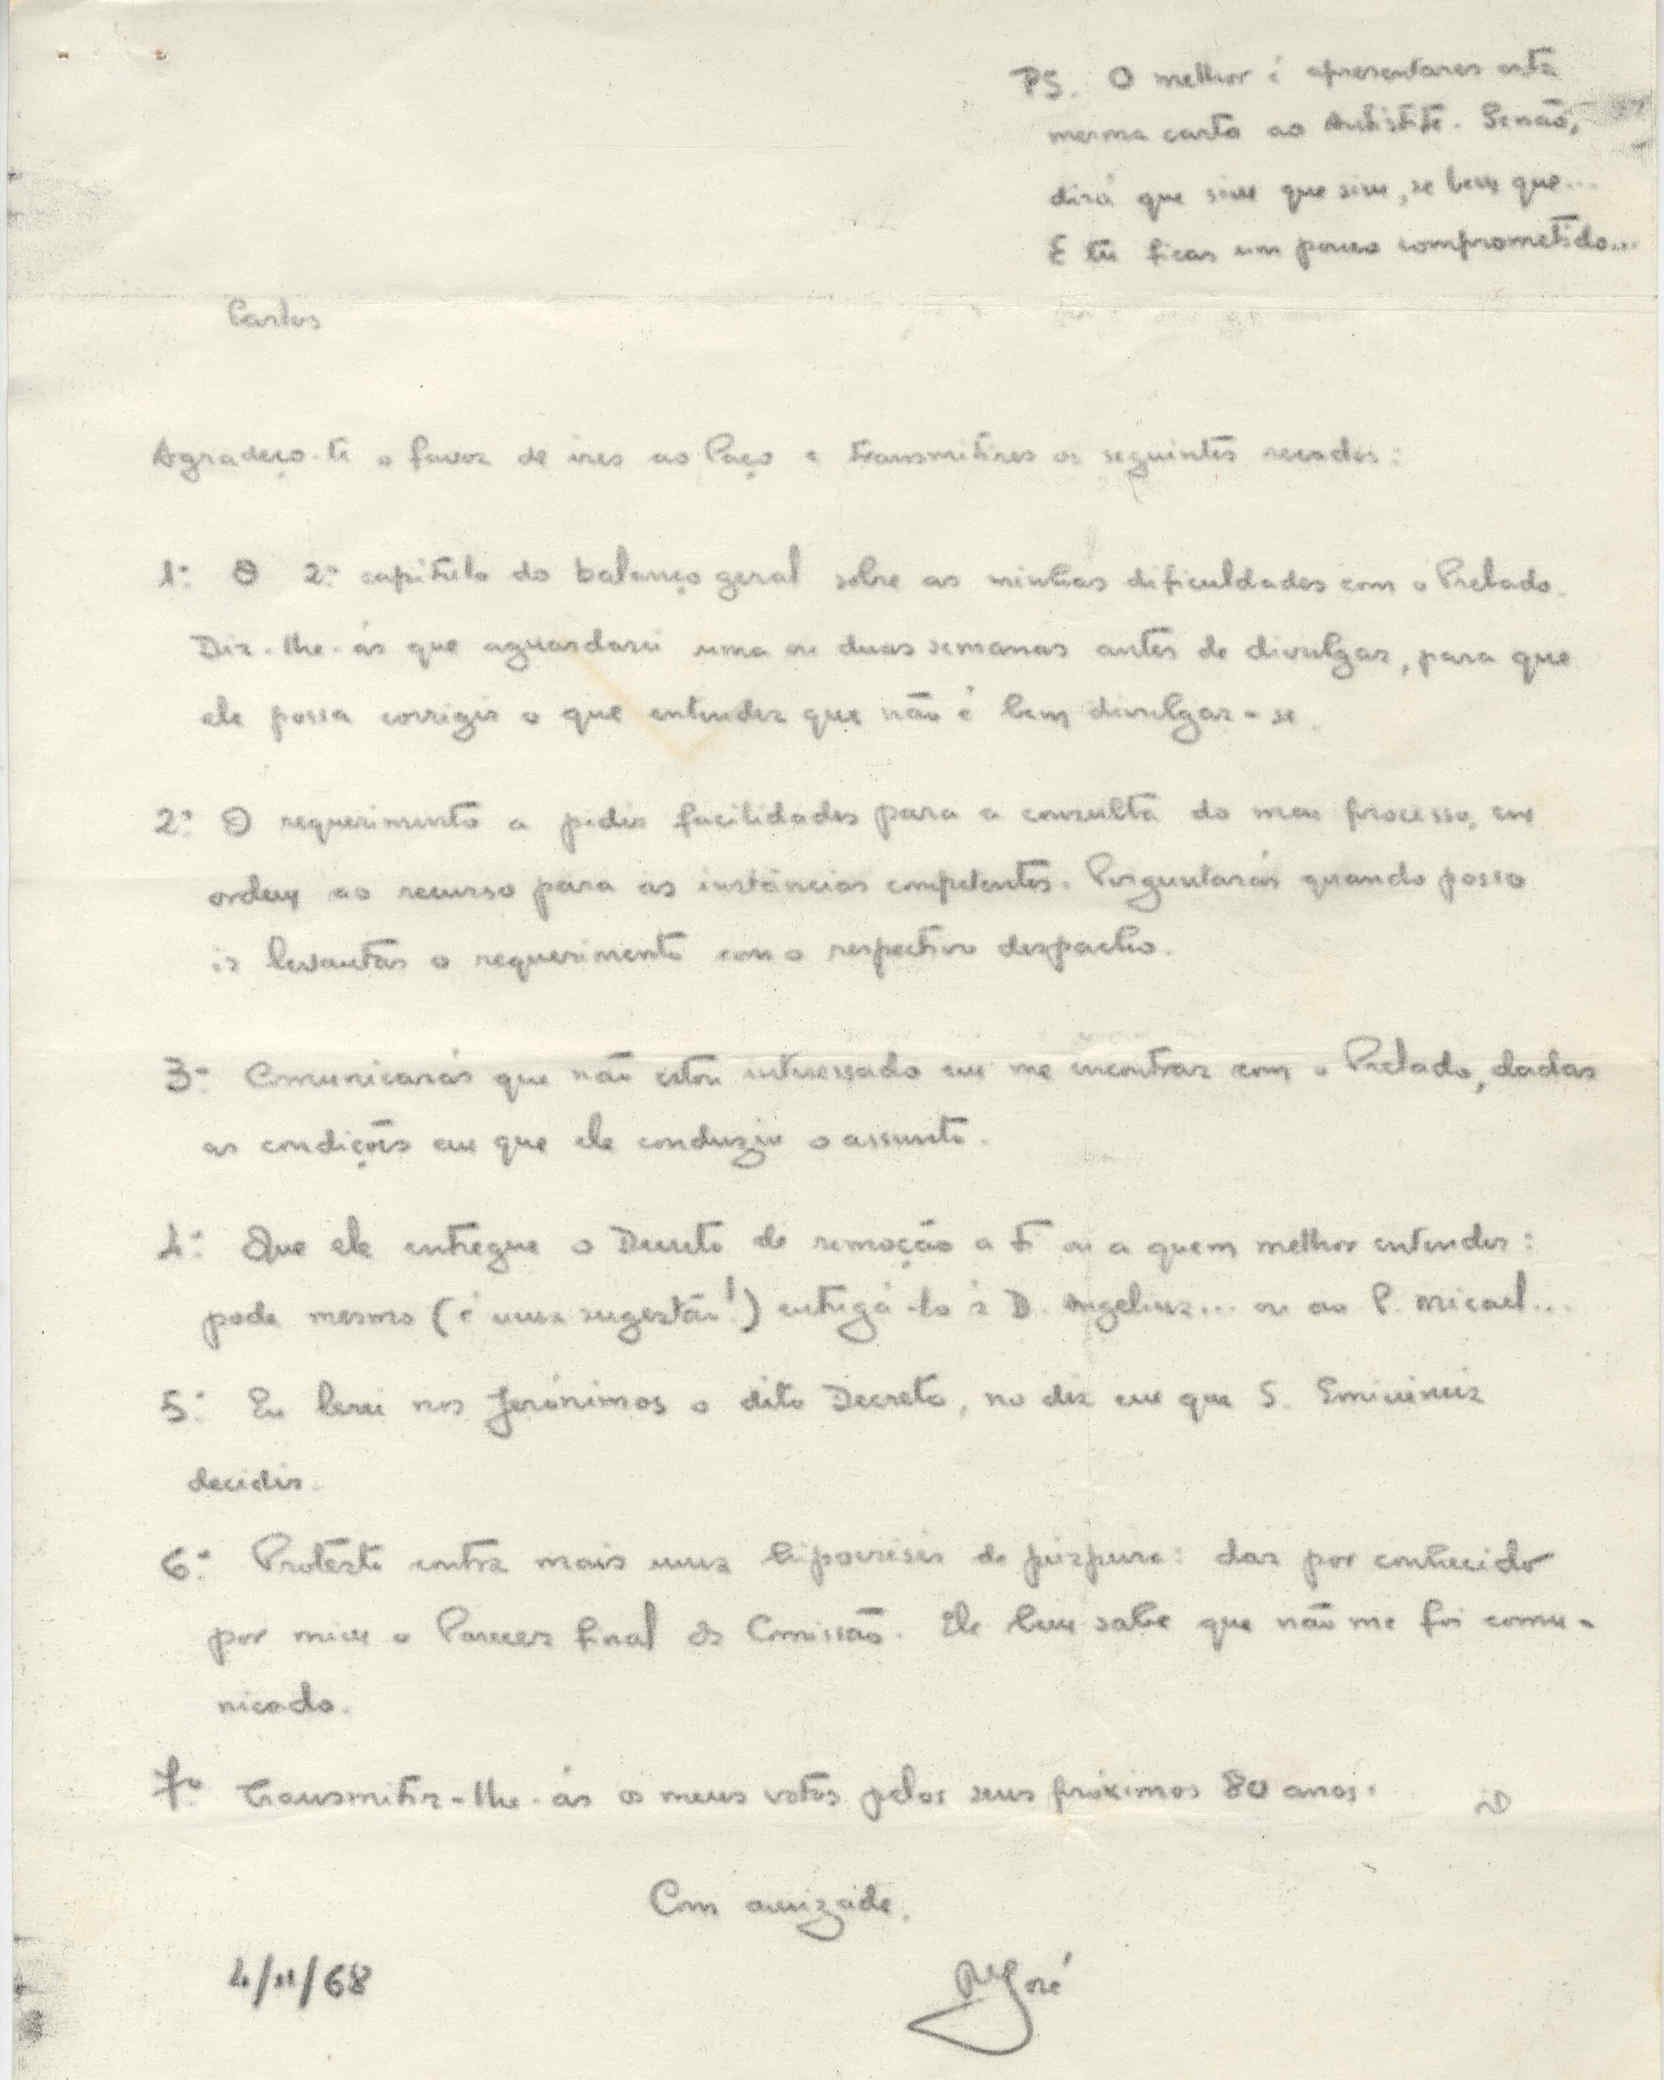 PS. O melhor é apresentares esta
mesma carta ao Antístite. Senão,
dirá que sim que sim, se bem que...
E tu ficas um pouco comprometido...
Carlos
Agradeço-te o favor de ires ao Paço e transmitires os seguintes recados:
1º O 2º capítulo do balanço geral sobre as minhas dificuldades com o Prelado.
Dir-lhe-ás que aguardarei uma ou duas semanas antes de divulgar, para que
ele possa corrigir o que entender que não é bem divulgar-se.
2º O requerimento a pedir facilidades para a consulta do meu processo, em
ordem ao recurso para as instâncias competentes. Perguntarás quando posso
ir levantar o requerimento com o respectivo despacho.
3º Comunicarás que não estou interessado em me encontrar com o Prelado, dadas
as condições em que ele conduziu o assunto.
4º Que ele entregue o Decreto de remoção a F ou a quem melhor entender:
pode mesmo (é uma sugestão!) entregá-lo à D. Angelina... ou ao P. Micael...
5º Eu lerei nos Jerónimos o dito Decreto, no dia em que S. Eminência
decidir.
6º Protesto contra mais uma hipocrisia de púrpura: dar por conhecido
por mim o Parecer final da Comissão. Ele bem sabe que não me foi comu-
nicado.
7º Transmitir-lhe-ás os meus votos pelos seus próximos 80 anos.
Com amizade,
4/11/68
José